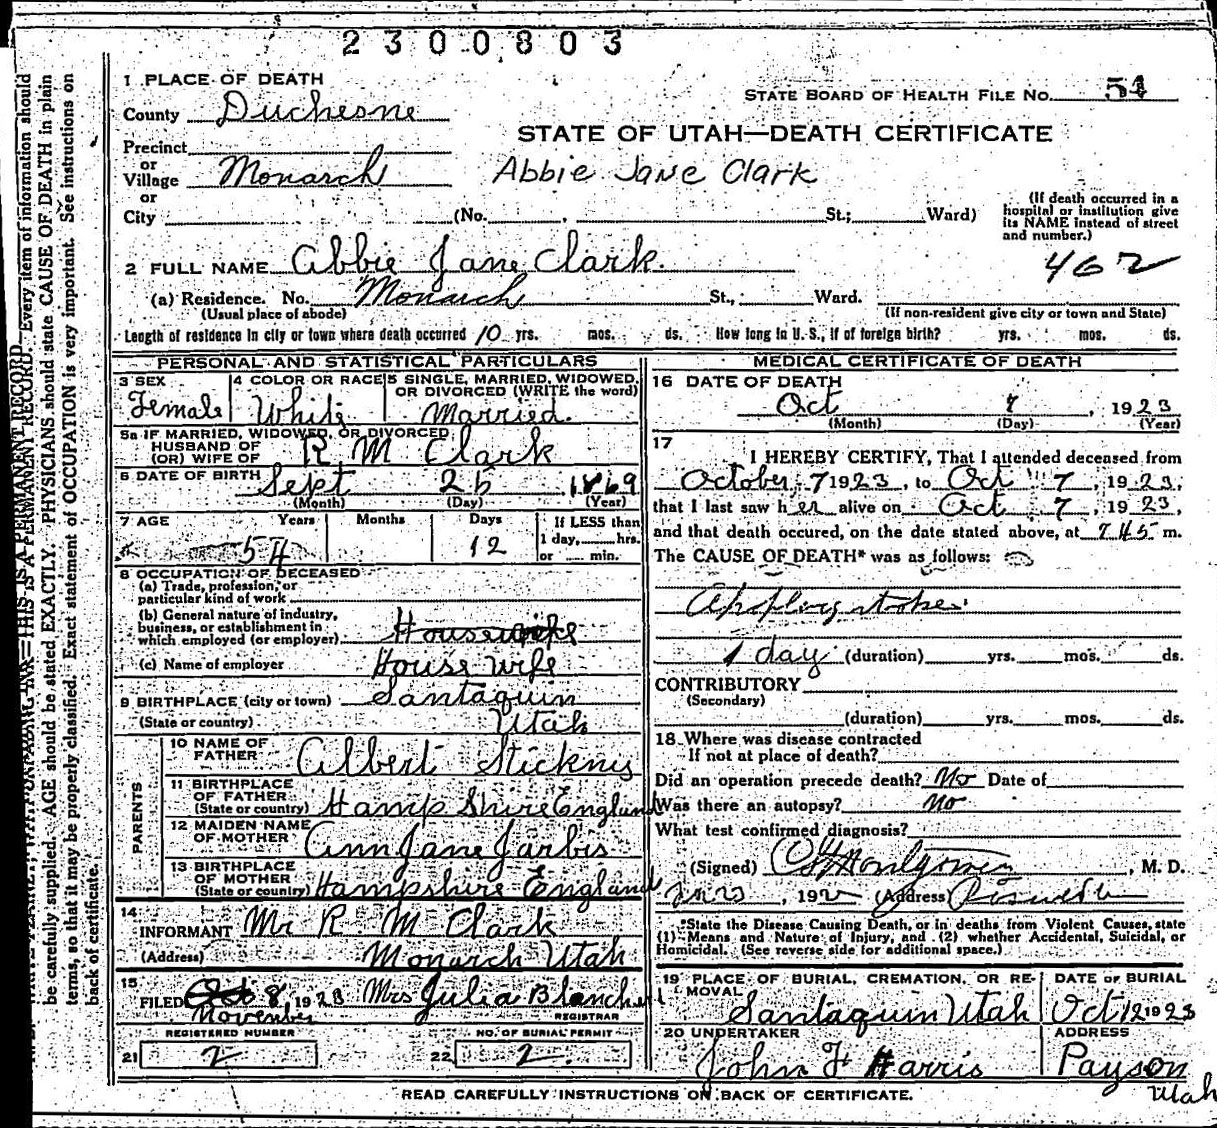 2300803
1 PLACE OF DEATH
STATE BOARD OF HEALTH FILE No. 54
County Duchesne
STATE OF UTAH—DEATH CERTIFICATE
Precinct
or
Village Monarch
Abbie Jane Clark
or
City (No. , St.; Ward)
(If death occurred in a
hospital or institution give
its NAME instead of street
and number.)
2 FULL NAME Abbie Jane Clark.
462
(a) Residence. No. Monarch St., Ward.
(Usual place of abode)
(If non-resident give city or town and State)
Length of residence in city or town where death occurred 10 yrs. mos. ds. How long in U. S., if of foreign birth? yrs. mos. ds.
PERSONAL AND STATISTICAL PARTICULARS
3 SEX
Female
4 COLOR OR RACE
White
5 SINGLE, MARRIED, WIDOWED,
OR DIVORCED (WRITE the word)
Married.
5a IF MARRIED, WIDOWED, OR DIVORCED
HUSBAND OF
(OR) WIFE OF R M Clark
6 DATE OF BIRTH Sept 26 1869
(Month) (Day) (Year)
7 AGE Years Months Days
54 12
If LESS than
1 day, hrs.
or min.
8 OCCUPATION OF DECEASED
(a) Trade, profession, or
particular kind of work
(b) General nature of industry,
business, or establishment in
which employed (or employer) Housewife
(c) Name of employer House Wife
9 BIRTHPLACE (city or town) Santaquin
(State or country) Utah
PARENTS
10 NAME OF
FATHER Albert Stickney
11 BIRTHPLACE
OF FATHER
(State or country) Hamp Shire England
12 MAIDEN NAME
OF MOTHER Ann Jane Jarbis
13 BIRTHPLACE
OF MOTHER
(State or country) Hampshire England
14
INFORMANT Mr R M Clark
(Address) Monarch Utah
15
FILED Oct 8, 1923 Mrs Julia Blanchard
November
REGISTRAR
REGISTERED NUMBER NO. OF BURIAL PERMIT
21 2 22 2.
MEDICAL CERTIFICATE OF DEATH
16 DATE OF DEATH
Oct 7, 1923
(Month) (Day) (Year)
17
I HEREBY CERTIFY, That I attended deceased from
October, 7 1923, to Oct 7, 1923,
that I last saw her alive on Oct 7, 1923,
and that death occured, on the date stated above, at 745 m.
The CAUSE OF DEATH* was as follows:
1 day (duration) yrs. mos. ds.
CONTRIBUTORY
(Secondary)
(duration) yrs. mos. ds.
18 Where was disease contracted
If not at place of death?
Did an operation precede death? No Date of
Was there an autopsy? No
What test confirmed diagnosis?
(Signed) , M. D.
, 192 (Address)
*State the Disease Causing Death, or in deaths from Violent Causes, state
(1) Means and Nature of Injury, and (2) whether Accidental, Suicidal, or
Homicidal. (See reverse side for additional space.)
19 PLACE OF BURIAL, CREMATION, OR RE-
MOVAL
Santaquin Utah
DATE OF BURIAL
Oct 12 1923
20 UNDERTAKER
John F Harris
ADDRESS
Payson
Utah
READ CAREFULLY INSTRUCTIONS ON BACK OF CERTIFICATE.
THIS IS A PERMANENT RECORD—Every item of information should
be carefully supplied. AGE should be stated EXACTLY. PHYSICIANS should state CAUSE OF DEATH in plain
terms, so that it may be properly classified. Exact statement of OCCUPATION is very important. See instructions on
back of certificate.